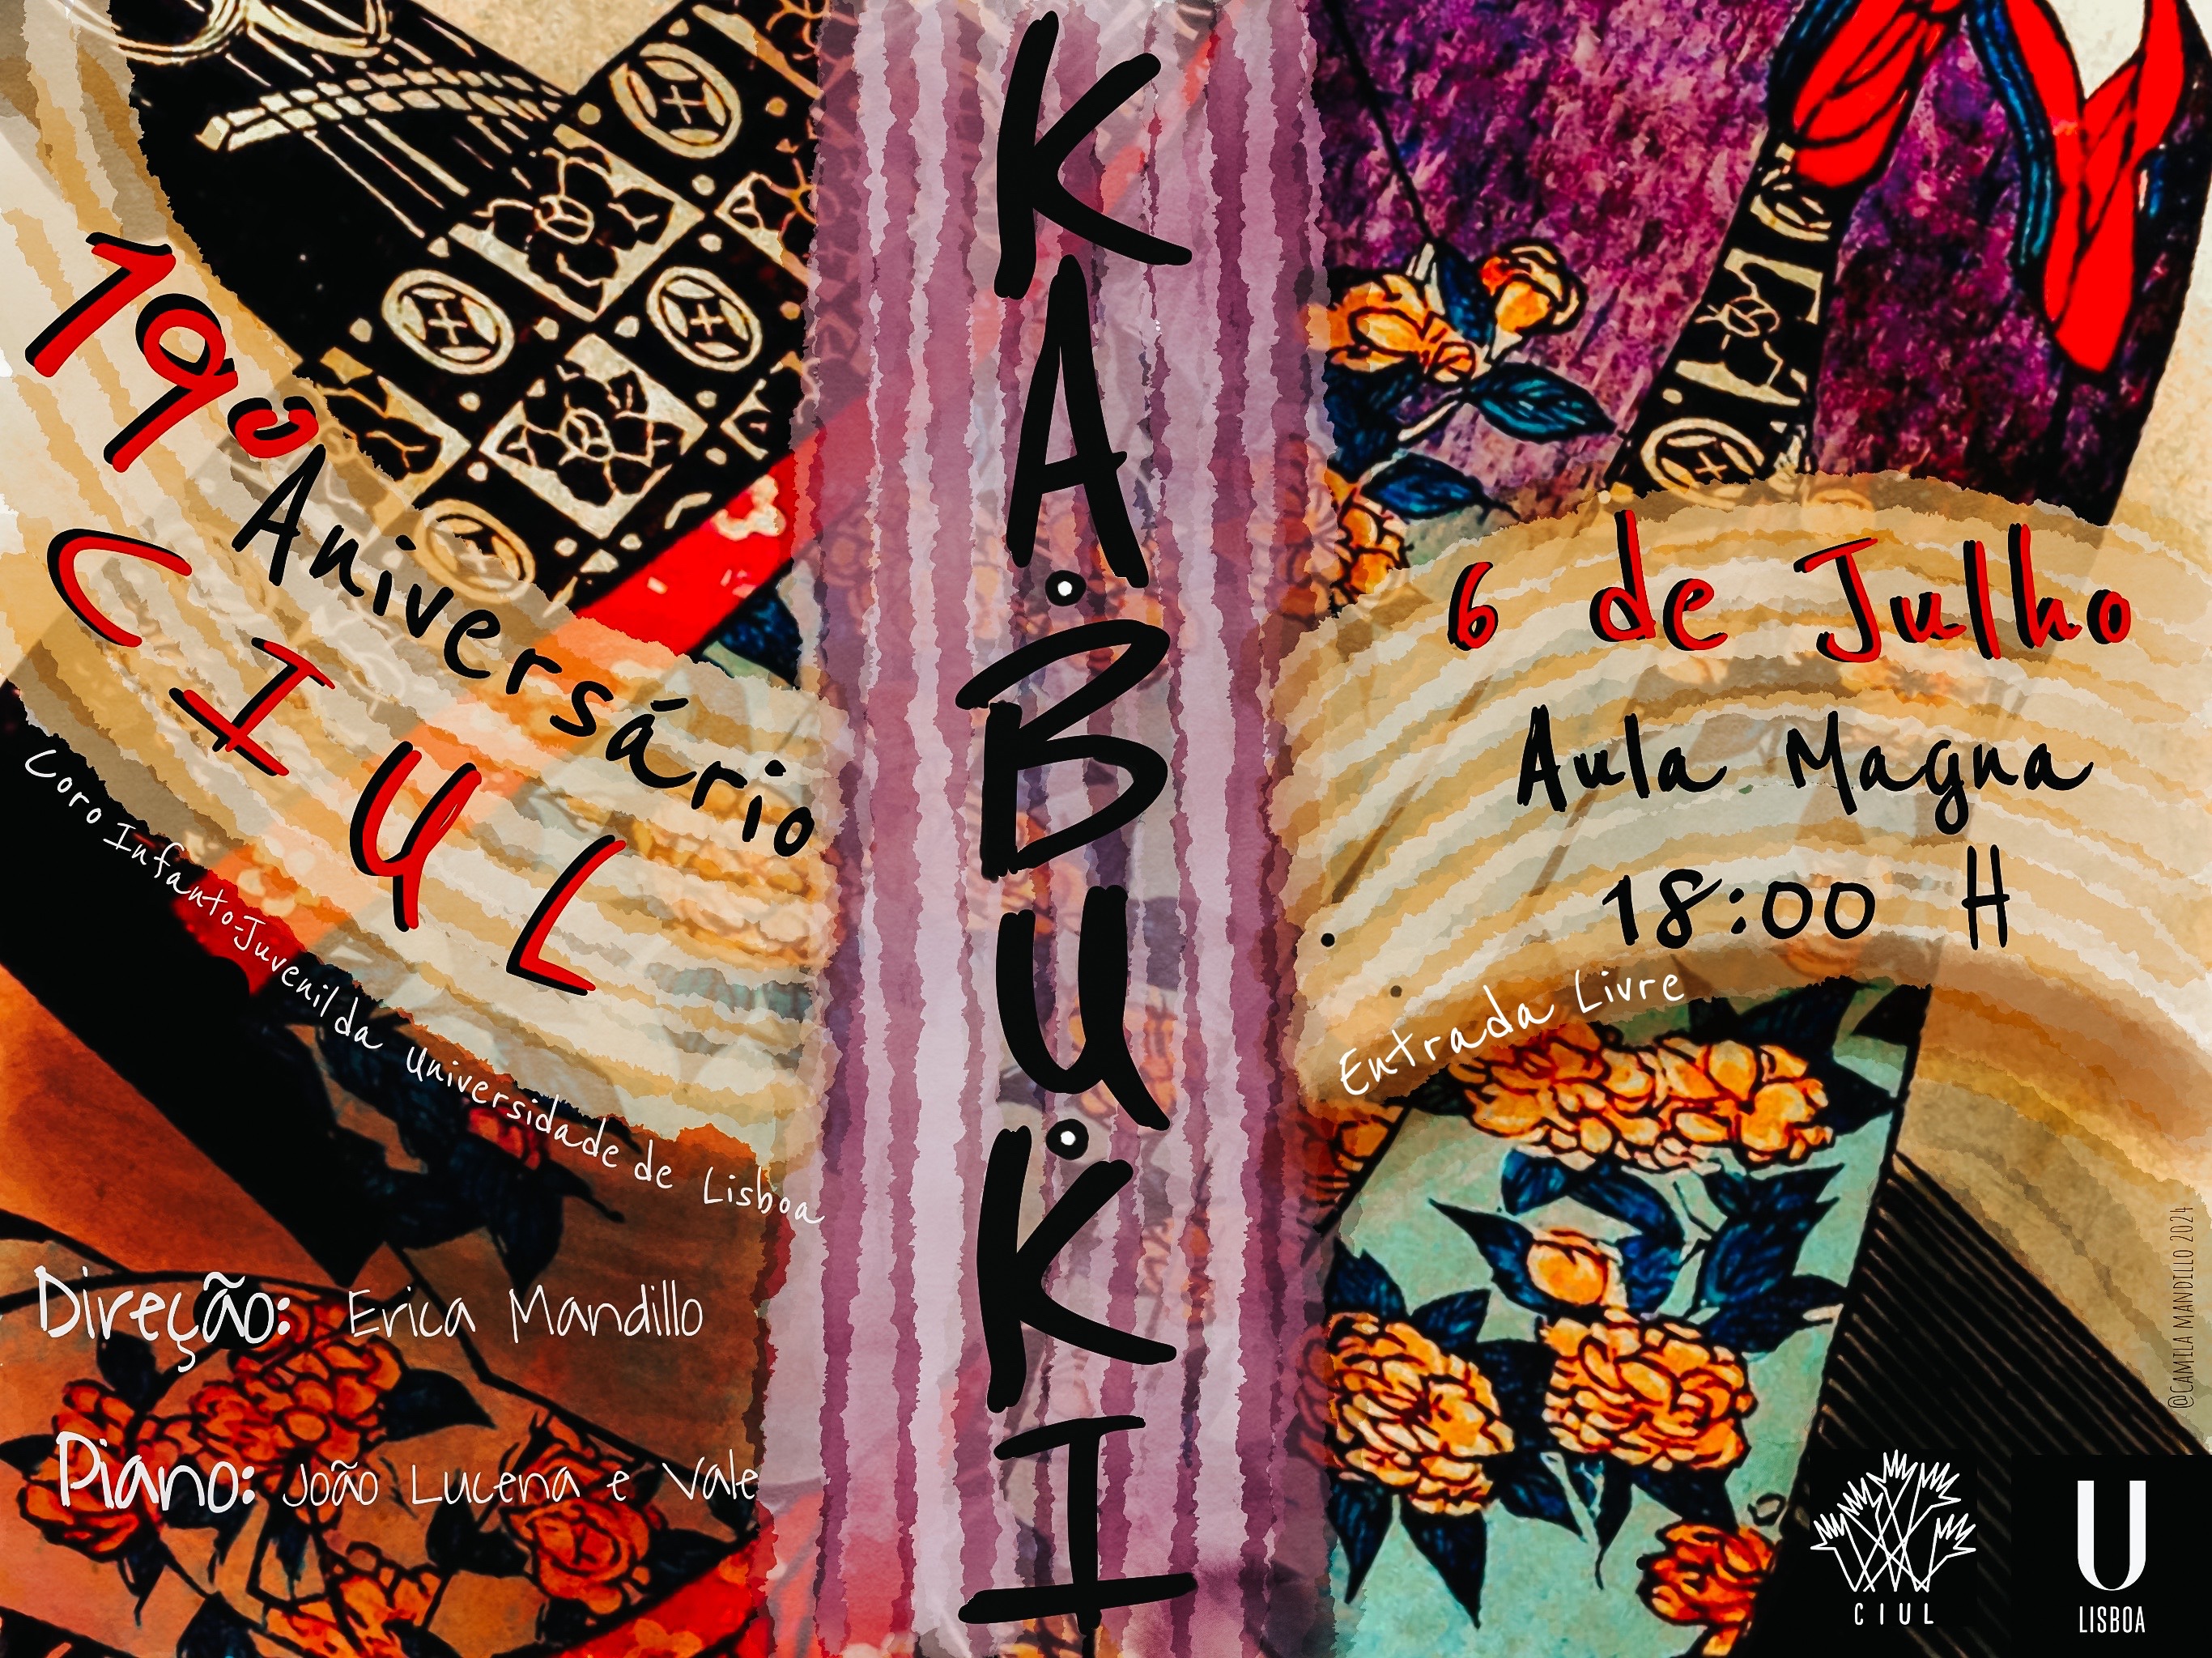 19º
Aniversário
CIUL
Coro Infanto-Juvenil da Universidade de Lisboa
Direção: Erica Mandillo
Piano: João Lucena e Vale
KA•BU•KI
6 de Julho
Aula Magna
18:00 H
Entrada Livre
@CAMILA MANDILLO 2024
CIUL
U
LISBOA